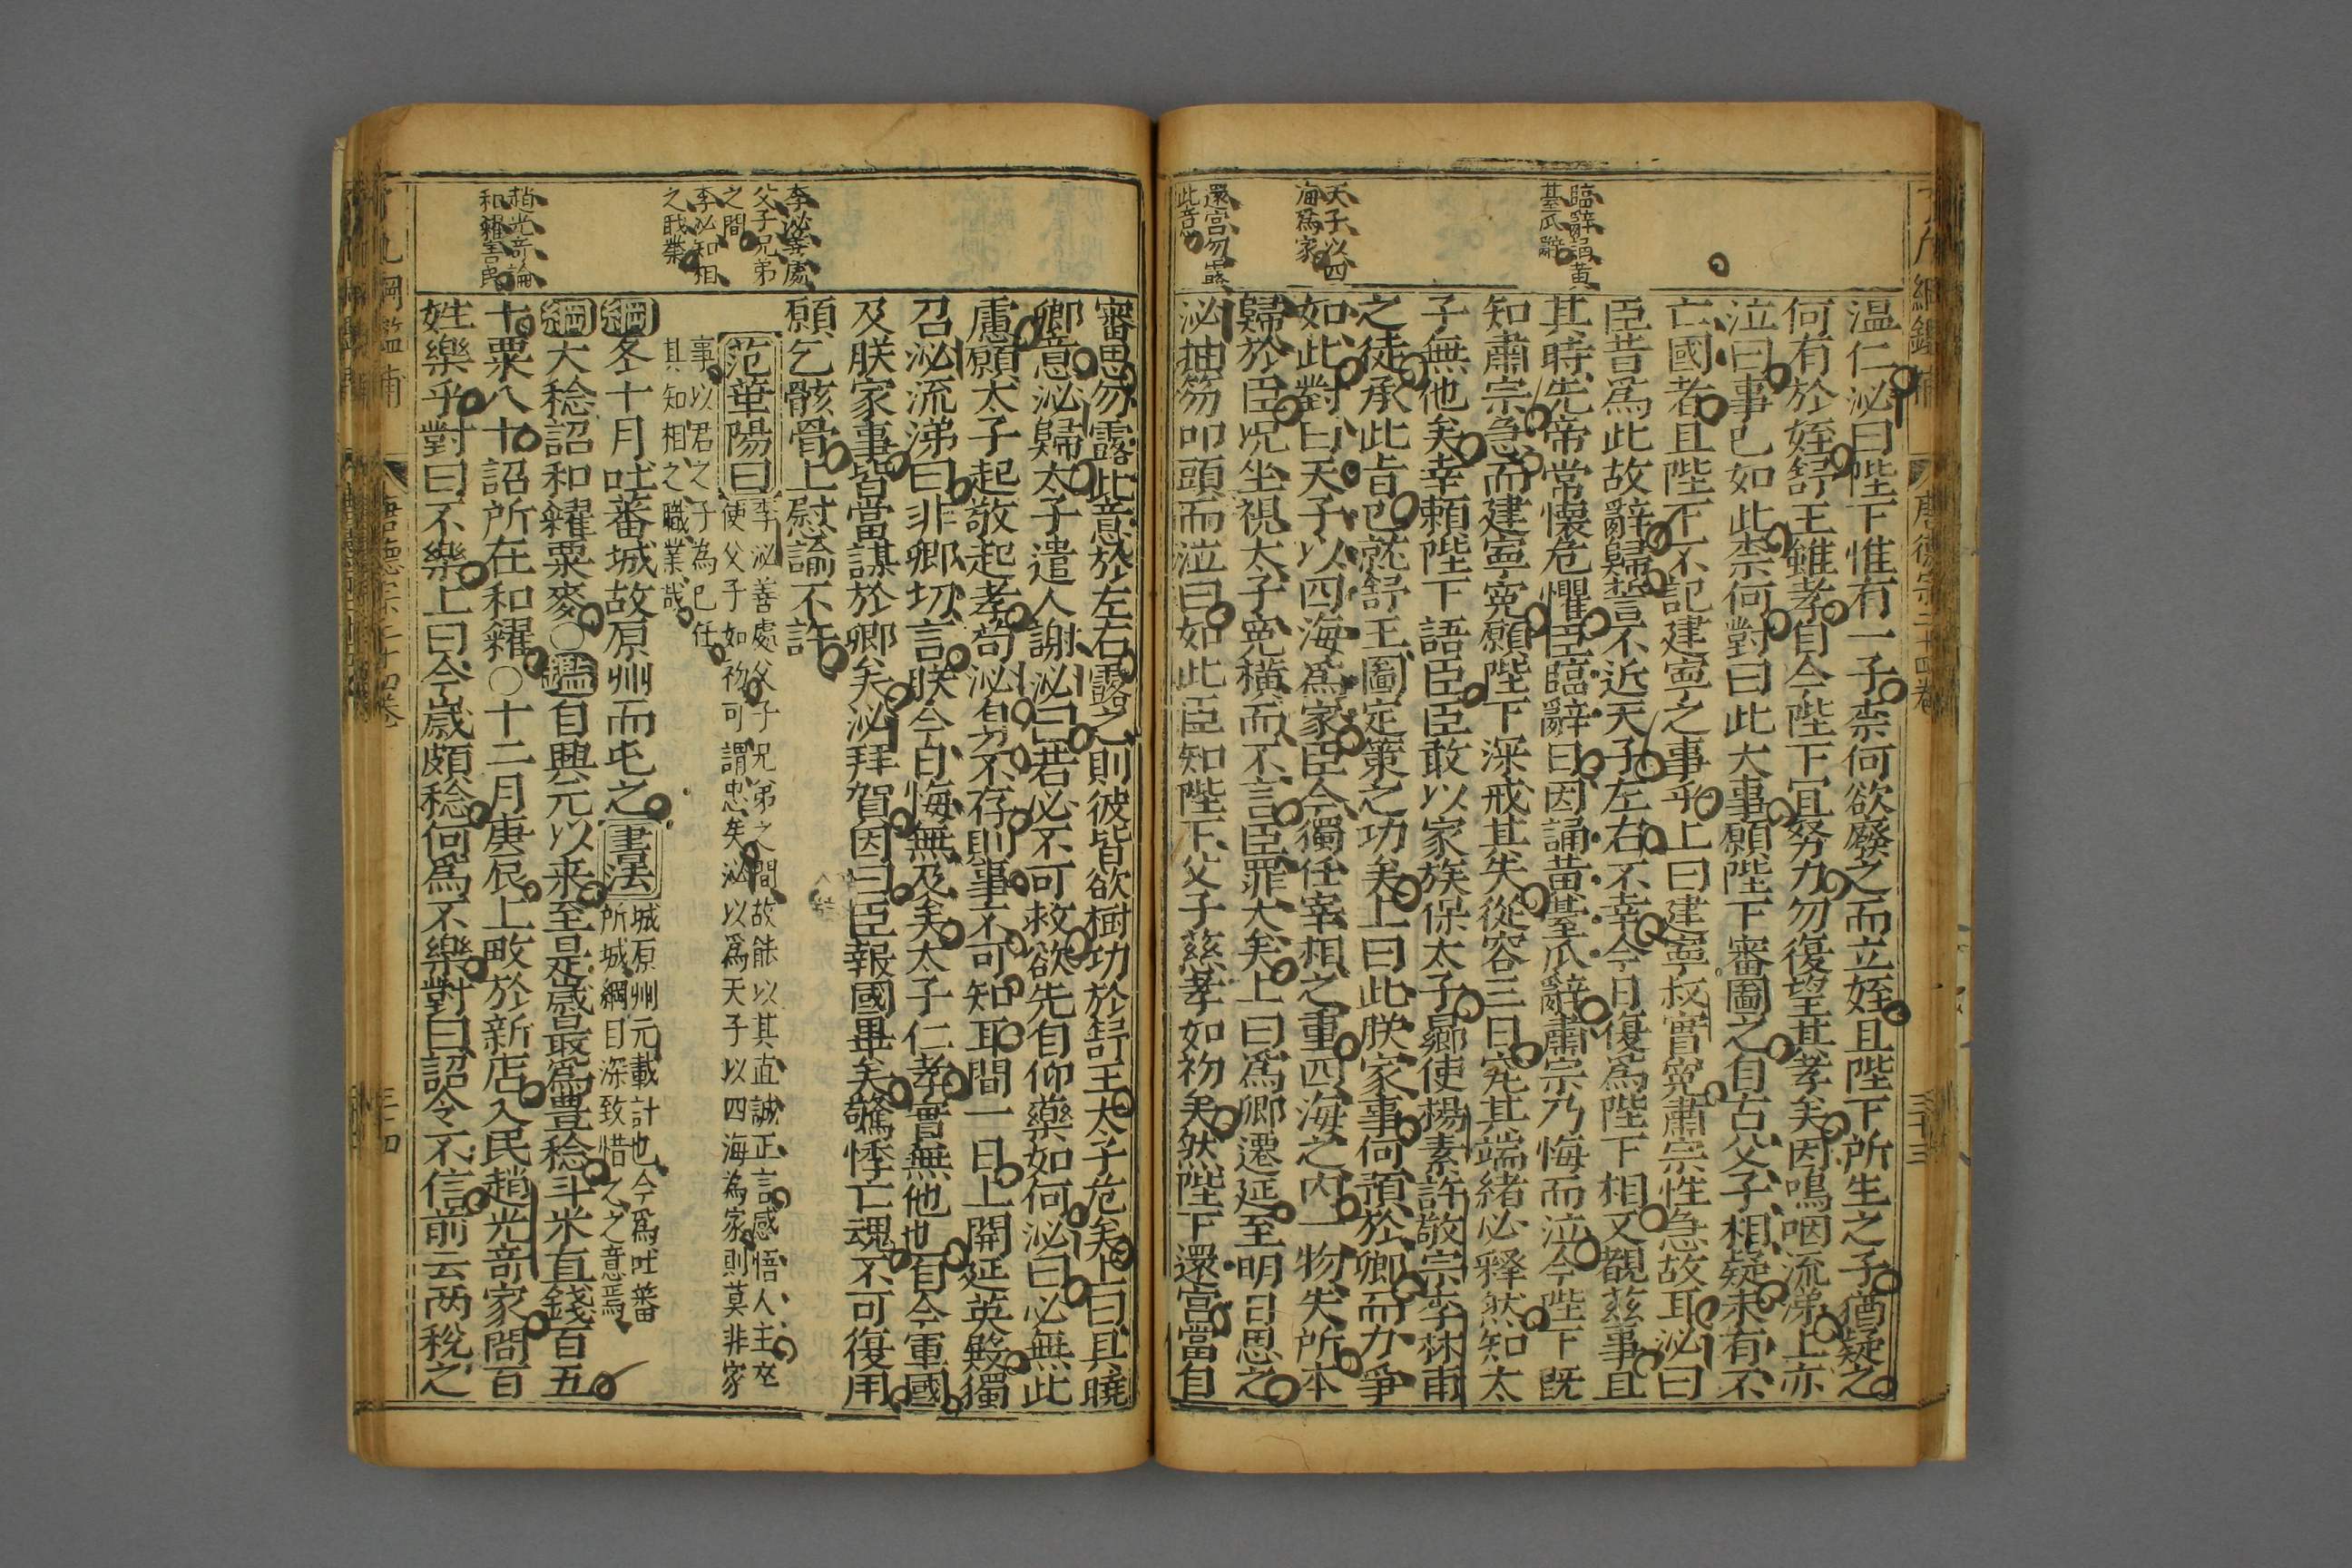 臨辭誦黃
基瓜辭
天子以四
海爲家
還宮勿露
此意
温仁泌曰陛下惟有一子柰何欲廢之而立姪且陛下所生之子猶疑之
何有於姪舒王雖孝自今陛下宜努力勿復望其孝矣因嗚咽流涕上亦
泣曰事已如此柰何對曰此大事願陛下審圖之自古父子相疑未有不
亡國者且陛下不記建寧之事乎上曰建寧叔實寃肅宗性急故耳泌曰
臣昔爲此故辭歸誓不近天子左右不幸今日復爲陛下相又覩兹事且
其時先帝常懷危懼臣臨辭日因誦黄䑓瓜辭肅宗乃悔而泣今陛下既
知肅宗急而建寧寃願陛下深戒其失從容三日究其端緒必釋然知太
子無他矣幸頼陛下語臣臣敢以家族保太子曏使楊素許敬宗李林甫
之徒承此㫖已就舒王圖定策之功矣上曰此朕家事何預於卿而力爭
如此對曰天子以四海爲家臣今獨任宰相之重四海之内一物失所本
歸於臣况坐視太子寃横而不言臣罪大矣上曰爲卿遷延至明日思之
泌抽笏叩頭而泣曰如此臣知陛下父子慈孝如初矣然陛下還宮當自
唐德宗二十四卷
三十三
李泌善處
父子兄弟
之間
李泌知相
之職業
趙光竒論
和糴害民
審思勿露此意於左右露之則彼皆欲樹功於舒王太子危矣上曰具曉
卿意泌歸太子遣人謝泌曰若必不可救欲先自仰藥如何泌曰必無此
慮願太子起敬起孝苟泌身不存則事不可知耳間一日上開延英殿獨
召泌流涕曰非卿切言朕今日悔無及矣太子仁孝實無他也自今軍國
及朕家事皆當謀於卿矣泌拜賀因曰臣報國畢矣驚悸亡魂不可復用
願乞骸骨上慰諭不許
范華陽曰李泌善處父子兄弟之間故能以其直誠正言感悟人主卒
使父子如初可謂忠矣泌以爲天子以四海為家則莫非家
事以君之子為已任
其知相之職業哉
綱冬十月吐蕃城故原州而屯之書法城原州元載計也今爲吐蕃
所城綱目深致惜之之意焉
綱大稔詔和糴粟麥〇鑑自興元以来至是歲最爲豊稔斗米直錢百五
十粟八十詔所在和糴〇十二月庚辰上畋於新店入民趙光竒家問百
姓樂乎對曰不樂上曰今歲頗稔何爲不樂對曰詔令不信前云两稅之
綱鑑補
唐德宗二十四卷
三十四